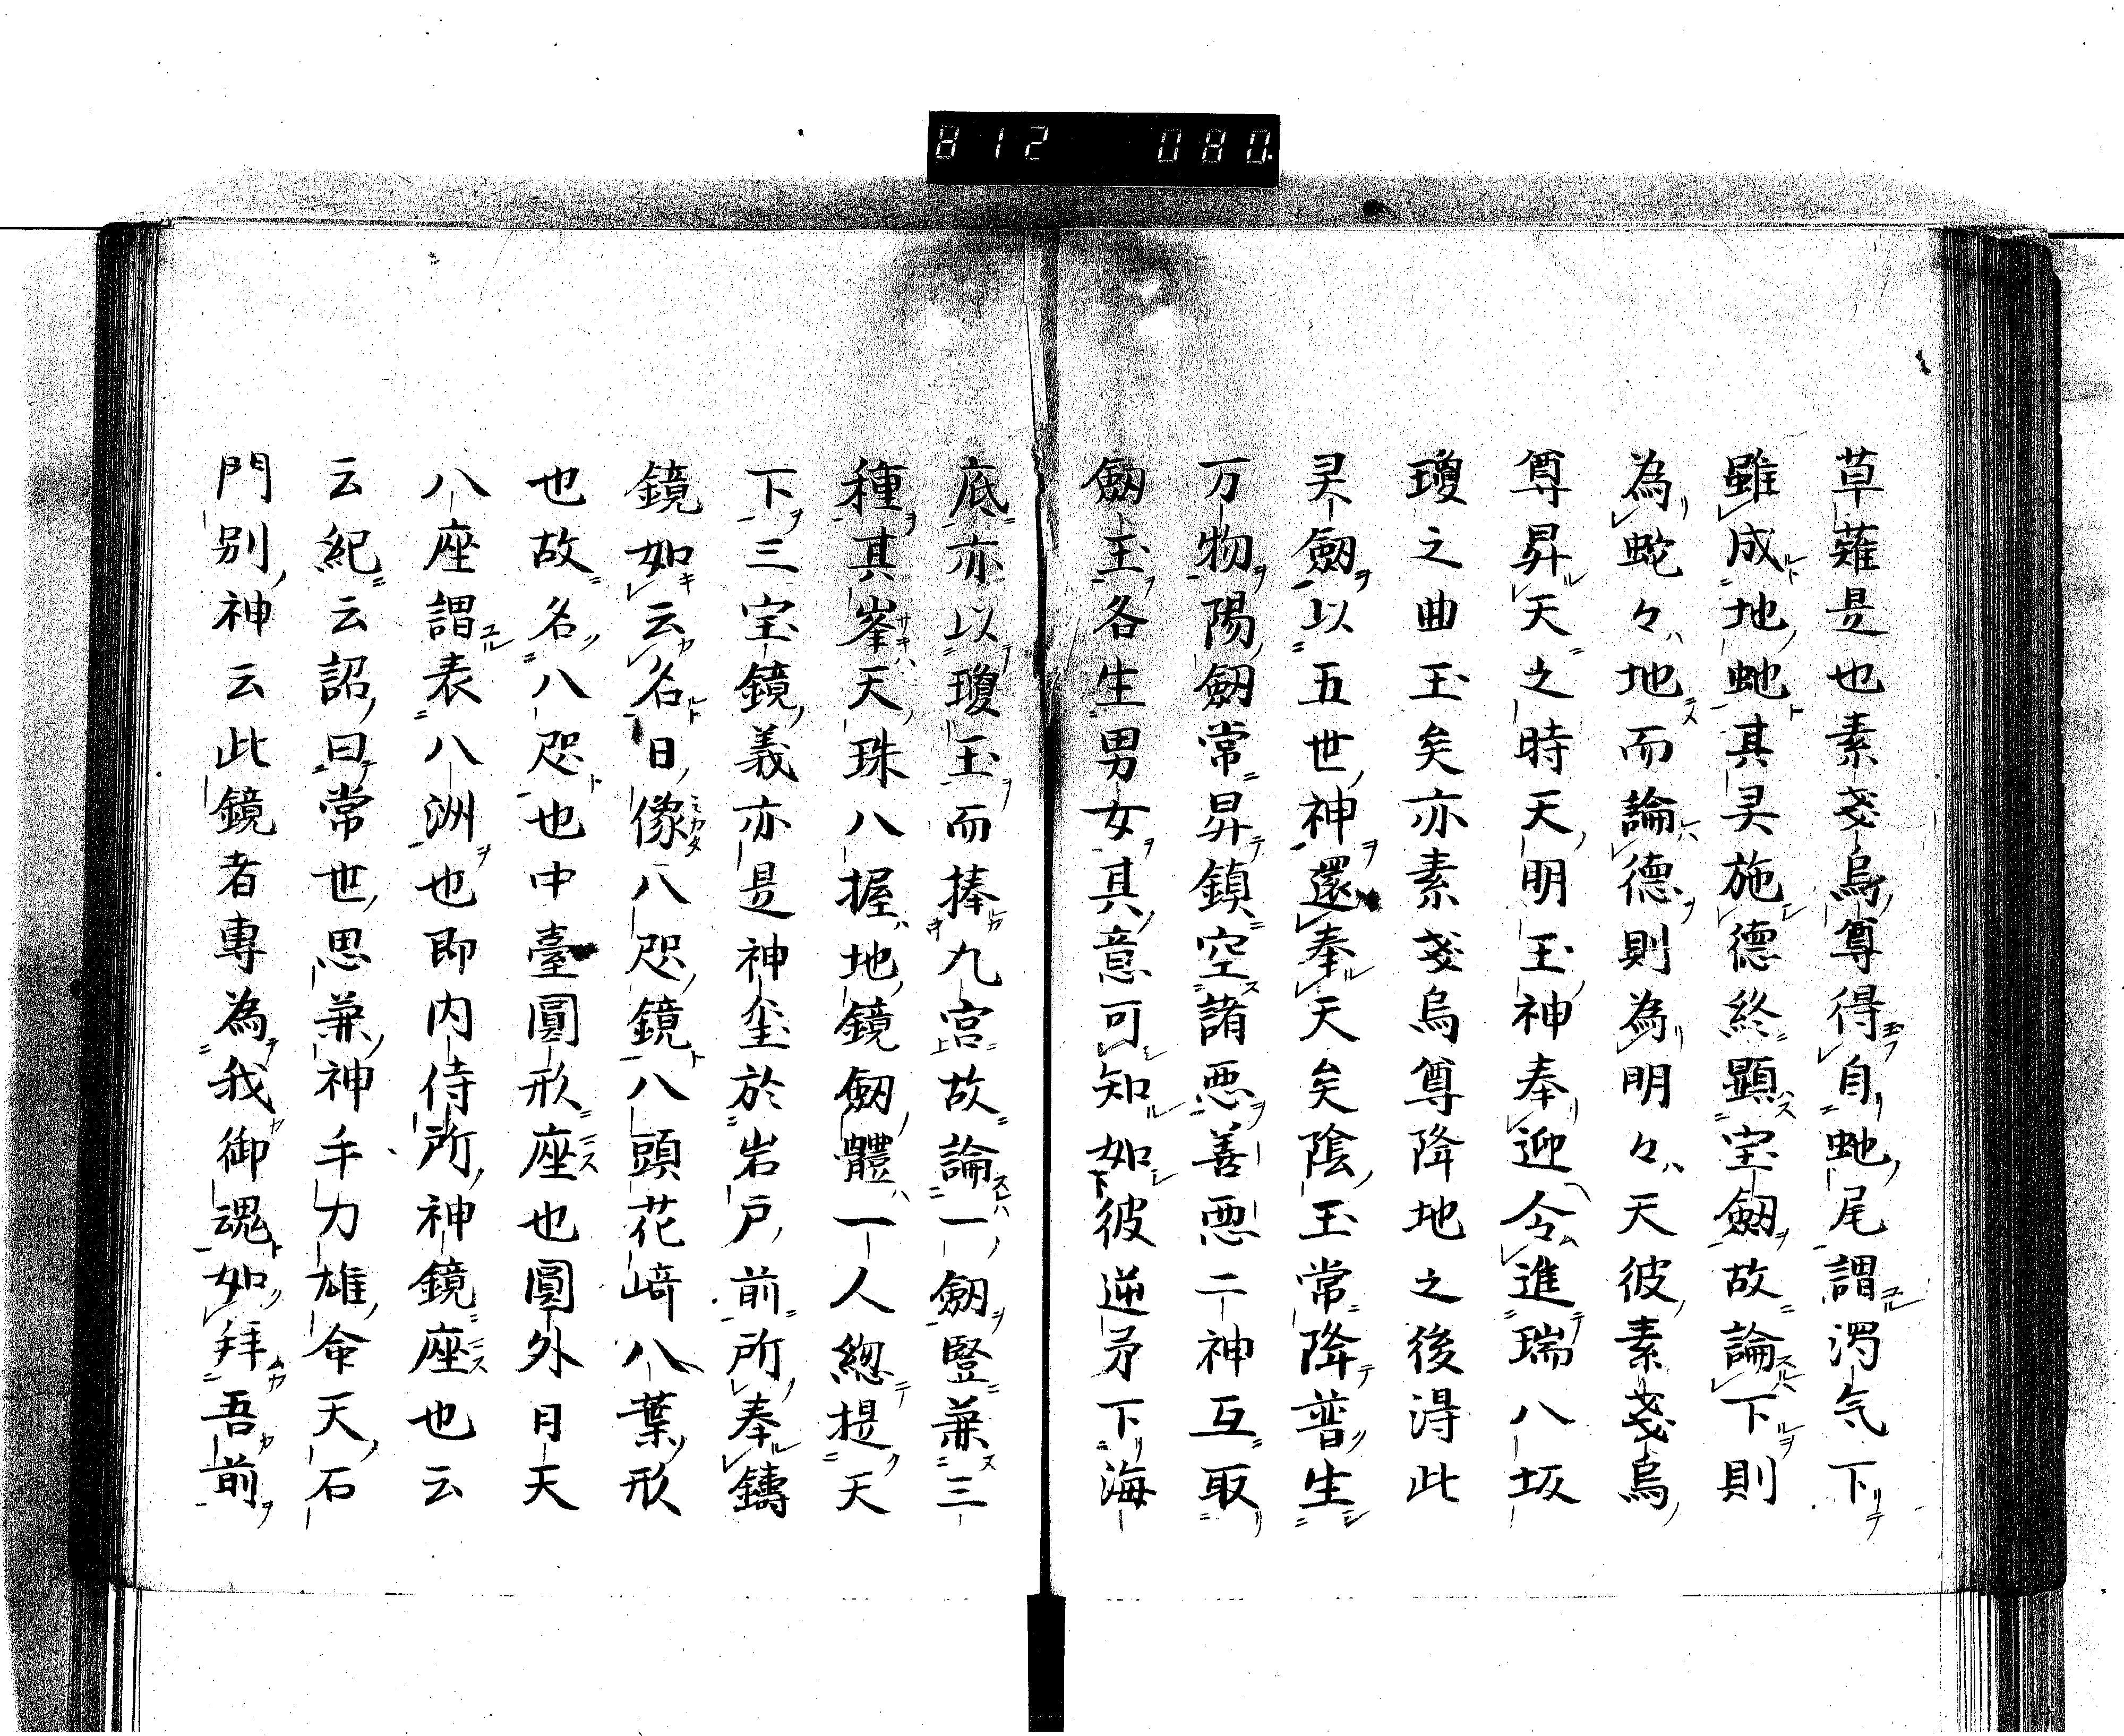 812 080.
草薙是也素戔烏尊得自虵尾謂濁气下
雖成地虵其㚑施德終顕宝劔故論下則
為蛇々地而論德則為明々天彼素戔烏
尊昇天之時天明玉神奉迎令進瑞八坂
瓊之曲玉矣亦素戔烏尊降地之後淂此
㚑劔以五世神還奉天矣陰玉常降普生
万物陽劔常昇鎮空諸悪善悪二神互取
劔玉各生男女其意可知如彼逆矛下海
底亦以瓊玉而捧九宮故論一劔竪兼三
種其峯天珠八握地鏡劔體一人惣提天
下三宝鏡義亦是神坐於岩戸前所奉鑄
鏡如云名日像八咫鏡八頭花﨑八葉形
也故名八咫也中臺圓形座也圓外日天
八座謂表八洲也即内侍所神鏡座也云
云紀云詔曰常世思兼神手力雄命天石
門別神云此鏡者専為我御魂如拜吾前